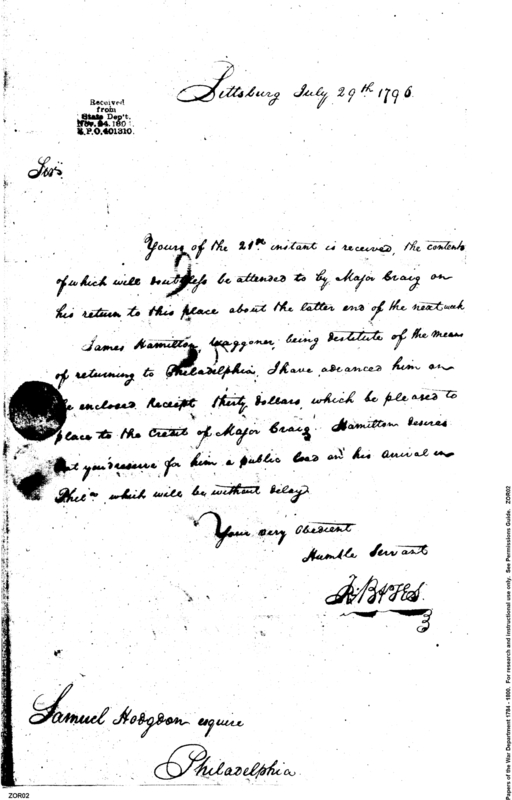 Pittsburg July 29th 1796
Received
from
State Dep't.
Nov. 24. 190
R.P.O. 401310.
Sir
Yours of the 21st instant is received, the contents
of which will doubtless be attended to by Major Craig on
his return to this place about the latter end of the next week
James Hamilton, waggoner, being destitute of the means
of returning to Philadelphia, I have advanced him on
enclosed Receipt thirty dollars which be pleased to
place to the Credit of Major Craig. Hamilton desires
that you'd reserve for him a public load on his arrival in
Phila which will be without delay
Your very Obedient
Humble Servant
Samuel Hodgdon esquire
Philadelphia
ZOR02
Papers of the War Department 1784 - 1800. For research and instructional use only. See Permissions Guide. ZOR02